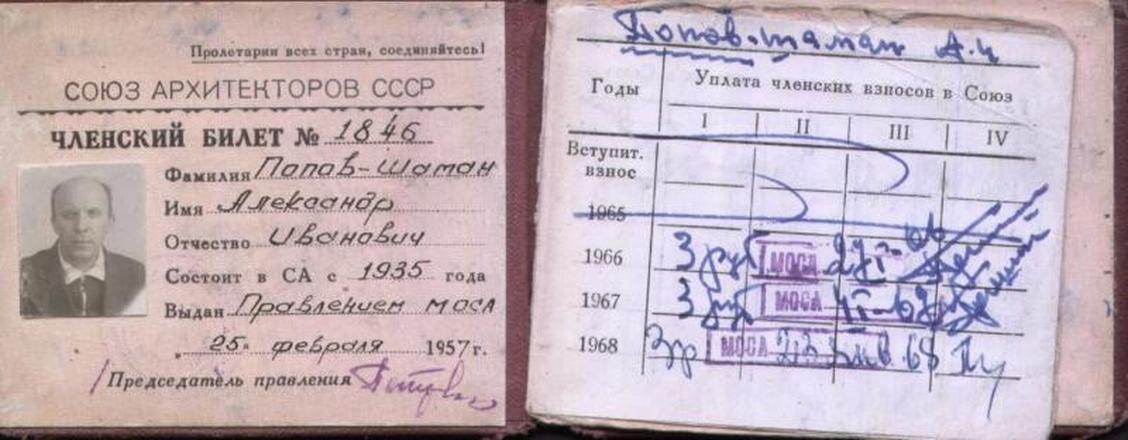 Пролетарии всех стран, соединяйтесь!
СОЮЗ АРХИТЕКТОРОВ СССР
ЧЛЕНСКИЙ БИЛЕТ № 1846
Фамилия Попов-Шаман
Имя Александр
Отчество Иванович
Состоит в СА с 1935 года
Выдан Правлением МОСА
„25" февраля 1957 г.
Председатель правления
Попов-Шаман А. И
Годы Уплата членских взносов в Союз
I II III IV
Вступит. взнос
1965
1966 3 руб МОСА
1967 3 руб МОСА
1968 3р МОСА 23 68